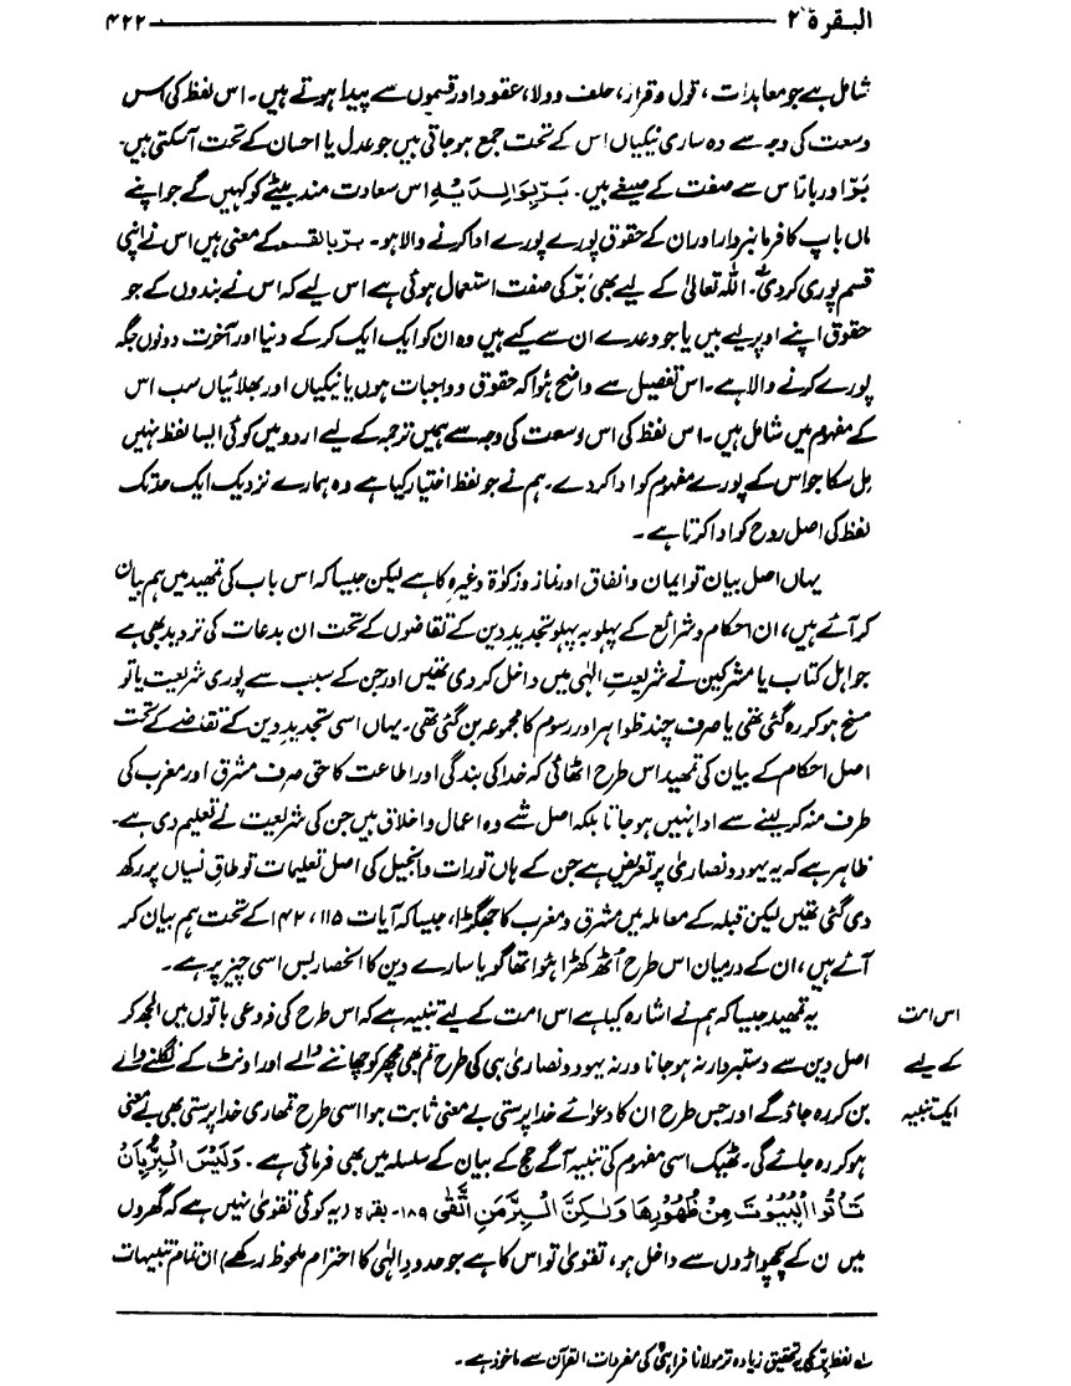 البقرة ۲ ۴۲۲
شامل ہے جو معاہدات، قول و قرار، حلف و ولا، عقود اور قسموں سے پیدا ہوتے ہیں۔ اس لفظ کی اس
وسعت کی وجہ سے وہ ساری نیکیاں اس کے تحت جمع ہو جاتی ہیں جو عدل یا احسان کے تحت آسکتی ہیں۔
بَرّ اور بارّ اس سے صفت کے صیغے ہیں۔ بَرٌّ بِوَالِدَيْهِ اس سعادت مند بیٹے کو کہیں گے جو اپنے
ماں باپ کا فرمانبردار اور ان کے حقوق پورے پورے ادا کرنے والا ہو۔ برّ بالقسم کے معنی ہیں اس نے اپنی
قسم پوری کردی۔ اللہ تعالیٰ کے لیے بھی بَرّ کی صفت استعمال ہوئی ہے اس لیے کہ اس نے بندوں کے جو
حقوق اپنے اوپر لیے ہیں یا جو وعدے ان سے کیے ہیں وہ ان کو ایک ایک کرکے دنیا اور آخرت دونوں جگہ
پورے کرنے والا ہے۔ اس تفصیل سے واضح ہؤا کہ حقوق و واجبات ہوں یا نیکیاں اور بھلائیاں سب اس
کے مفہوم میں شامل ہیں۔ اس لفظ کی اس وسعت کی وجہ سے ہمیں ترجمہ کے لیے اردو میں کوئی ایسا لفظ نہیں
مل سکا جو اس کے پورے مفہوم کو ادا کردے۔ ہم نے جو لفظ اختیار کیا ہے وہ ہمارے نزدیک ایک حد تک
لفظ کی اصل روح کو ادا کرتا ہے۔
یہاں اصل بیان تو ایمان و انفاق اور نماز و زکوٰۃ وغیرہ کا ہے لیکن جیسا کہ اس باب کی تمہید میں ہم بیان
کر آئے ہیں، ان احکام و شرائع کے پہلو بہ پہلو تجدیدِ دین کے تقاضوں کے تحت ان بدعات کی تردید بھی ہے
جو اہل کتاب یا مشرکین نے شریعتِ الٰہی میں داخل کر دی تھیں اور جن کے سبب سے پوری شریعت یا تو
مسخ ہو کر رہ گئی تھی یا صرف چند ظواہر اور رسوم کا مجموعہ بن گئی تھی۔ یہاں اسی تجدیدِ دین کے تقاضے کے تحت
اصل احکام کے بیان کی تمہید اس طرح اٹھائی کہ خدا کی بندگی اور اطاعت کا حق صرف مشرق اور مغرب کی
طرف منہ کر لینے سے ادا نہیں ہو جاتا بلکہ اصل شے وہ اعمال و اخلاق ہیں جن کی شریعت نے تعلیم دی ہے۔
ظاہر ہے کہ یہ یہود و نصاریٰ پر تعریض ہے جن کے ہاں تورات و انجیل کی اصل تعلیمات تو طاقِ نسیاں پر رکھ
دی گئی تھیں لیکن قبلہ کے معاملہ میں مشرق و مغرب کا جھگڑا، جیسا کہ آیات ۱۱۵، ۱۴۲ کے تحت ہم بیان کر
آئے ہیں، ان کے درمیان اس طرح اُٹھ کھڑا ہؤا تھا گویا سارے دین کا انحصار بس اسی چیز پر ہے۔
اس امت
کے لیے
ایک تنبیہ
یہ تمہید جیسا کہ ہم نے اشارہ کیا ہے اس امت کے لیے تنبیہ ہے کہ اس طرح کی فروعی باتوں میں الجھ کر
اصل دین سے دستبردار نہ ہو جانا ورنہ یہود و نصاریٰ ہی کی طرح تم بھی مچھر کو چھاننے والے اور اونٹ کے نگلنے والے
بن کر رہ جاؤ گے اور جس طرح ان کا دعوائے خدا پرستی بے معنی ثابت ہوا اسی طرح تمھاری خدا پرستی بھی بے معنی
ہو کر رہ جائے گی۔ ٹھیک اسی مفہوم کی تنبیہ آگے حج کے بیان کے سلسلہ میں بھی فرمائی ہے۔ وَلَيْسَ الْبِرُّ بِاَنْ
تَاْتُوا الْبُيُوْتَ مِنْ ظُهُوْرِهَا وَلٰكِنَّ الْبِرَّ مَنِ اتَّقٰى ۱۸۹۔ بقرہ (یہ کوئی تقویٰ نہیں ہے کہ گھروں
میں ن کے پچھواڑوں سے داخل ہو، تقویٰ تو اس کا ہے جو حدودِ الٰہی کا احترام ملحوظ رکھے) ان تمام تنبیہات
لفظ بِرّ کی یہ تحقیق زیادہ تر مولانا فراہیؒ کی مفردات القرآن سے ماخوذ ہے۔